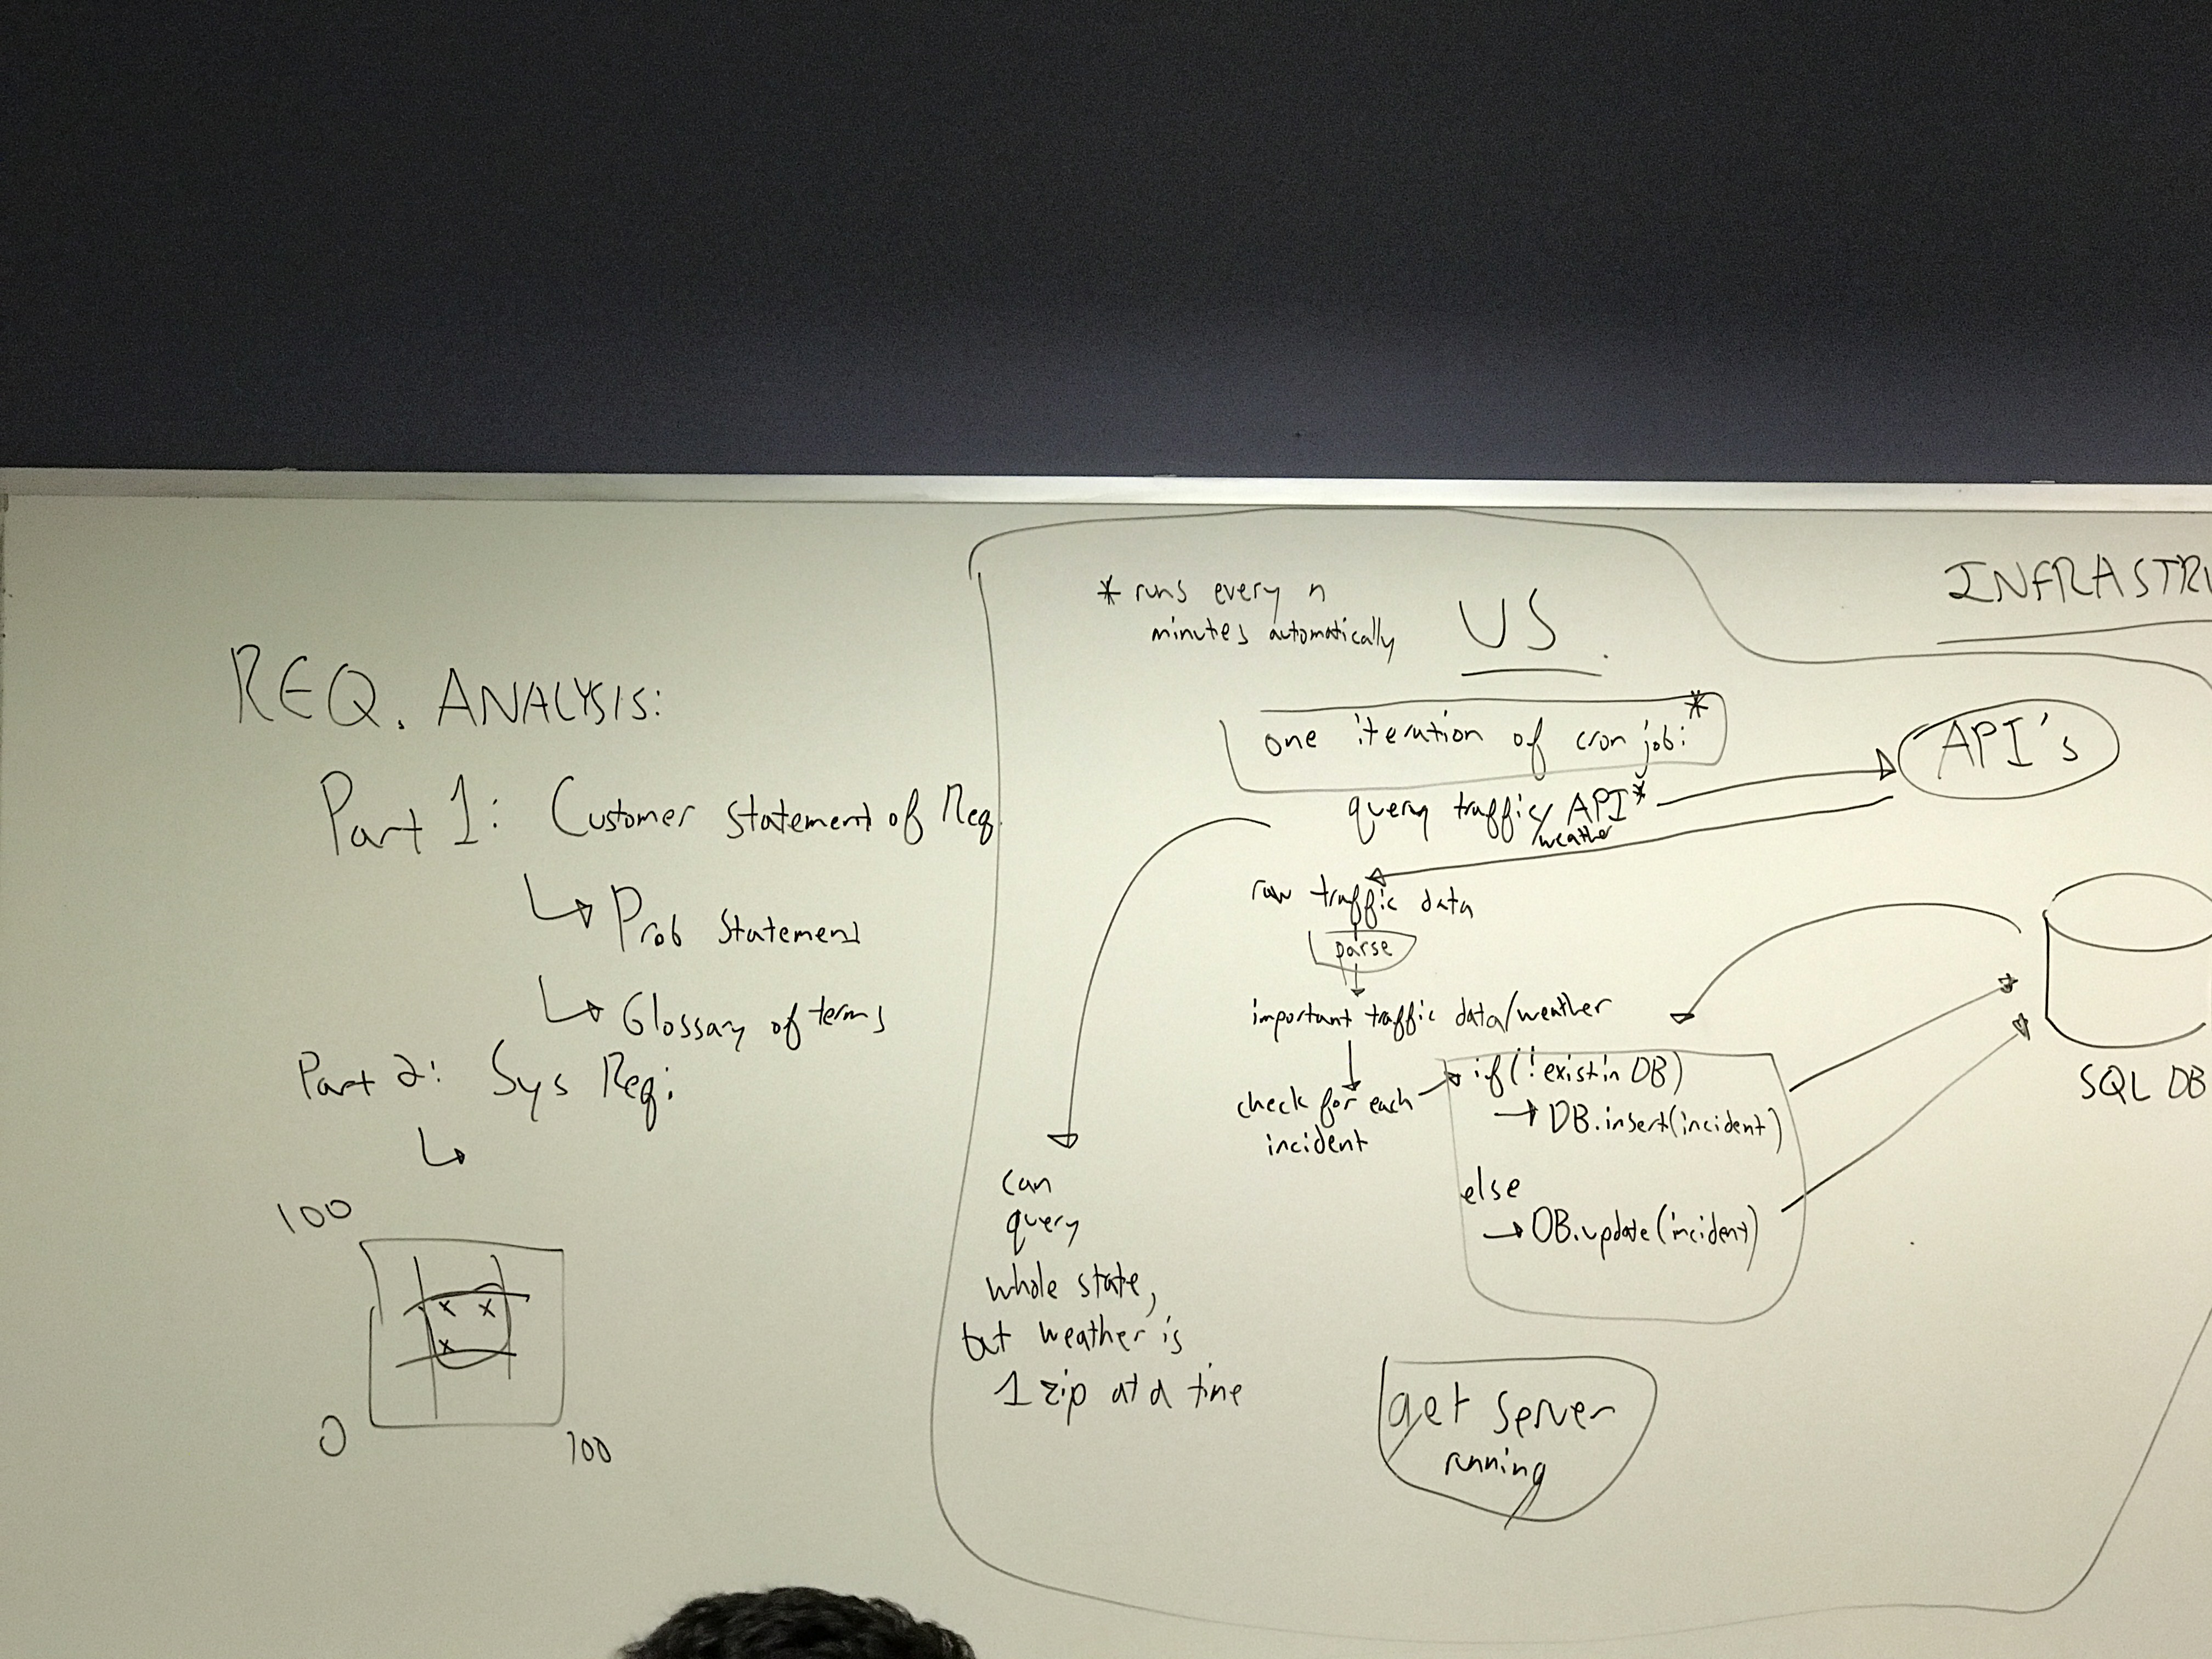 REQ. ANALYSIS:
Part 1: Customer Statement of Req.
Prob Statement
Glossary of terms
Part 2: Sys Req:
100
x x
x
0
100
* runs every n
minutes automatically
US
one iteration of cron job: *
query traffic/ API*
weather
raw traffic data
parse
important traffic data/weather
check for each
incident
if(!exist in DB)
→ DB.insert(incident)
else
→ DB.update(incident)
can
query
whole state,
but weather is
1 zip at a time
get server
running
INFRASTRU
API's
SQL DB